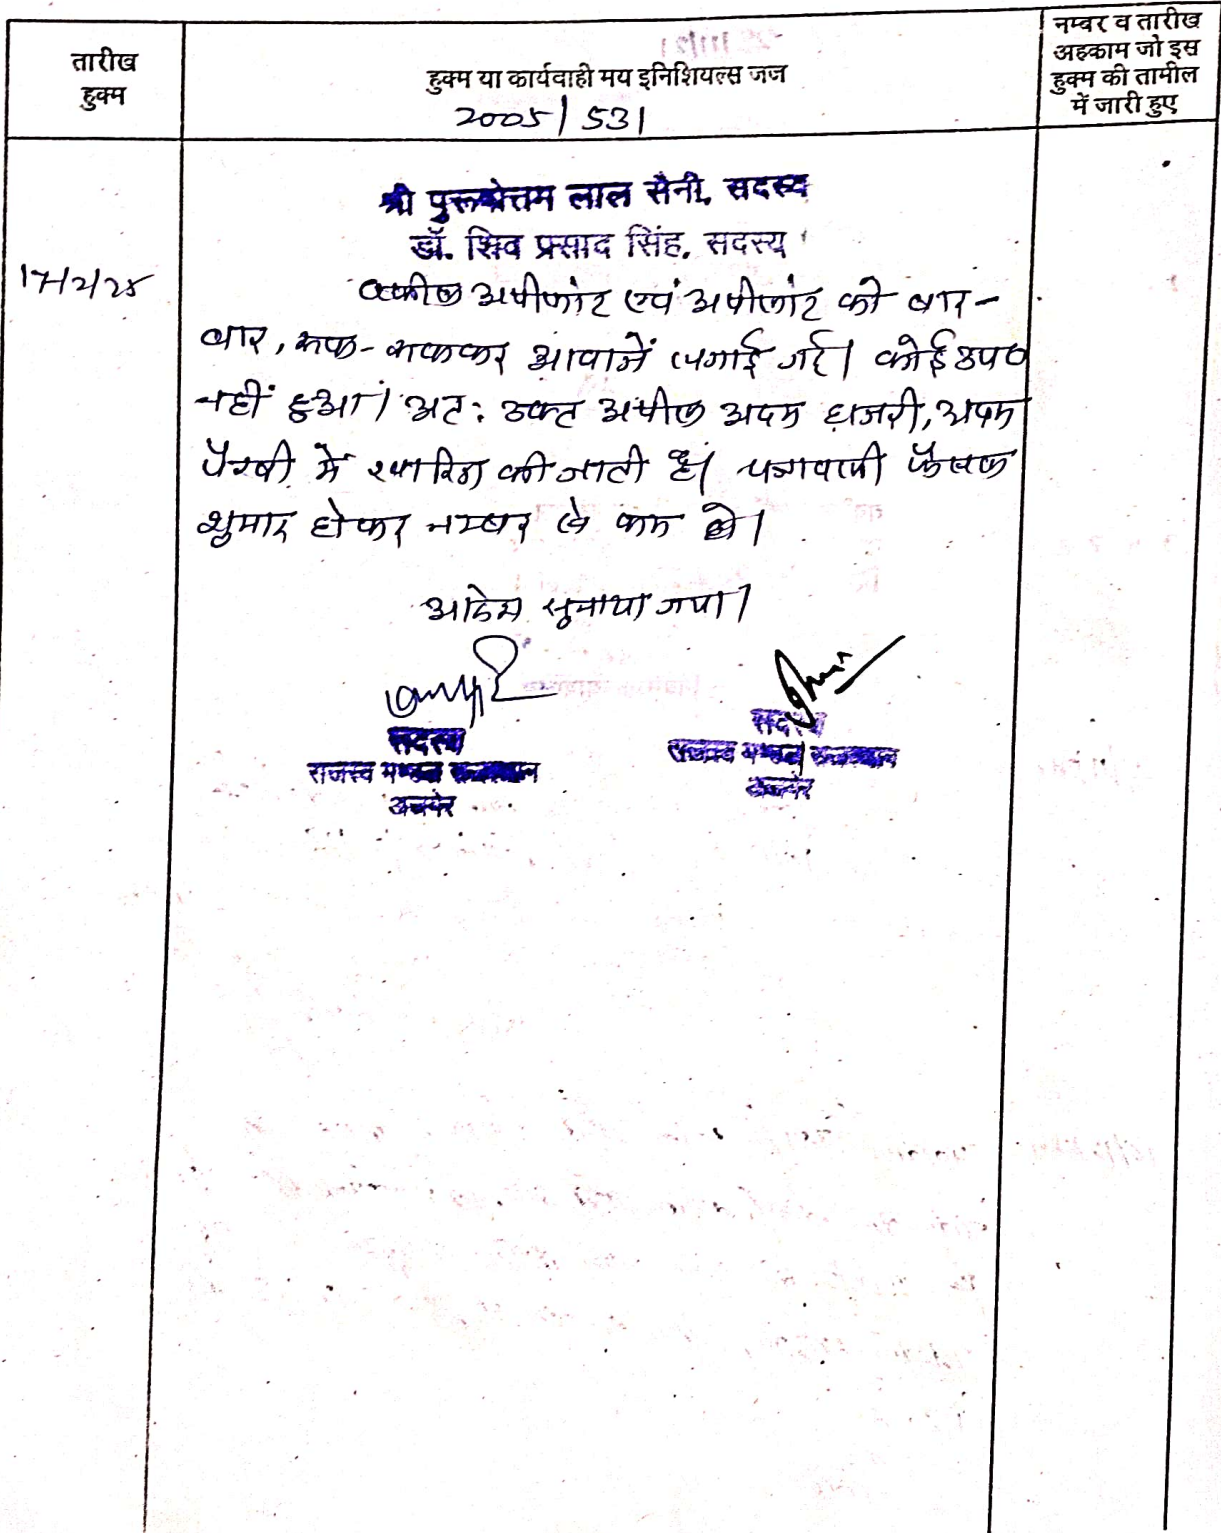 तारीख
हुक्म
हुक्म या कार्यवाही मय इनिशियल्स जज
2005/531
नम्बर व तारीख
अहकाम जो इस
हुक्म की तामील
में जारी हुए
श्री पुरूषोत्तम लाल सैनी, सदस्य
डॉ. शिव प्रसाद सिंह, सदस्य
17/2/25
वकील अपीलांट एवं अपीलांट को बार-
बार, रूक-रूककर आवाजें लगाई गई। कोई उप०
नहीं हुआ। अतः उक्त अपील अदम हाजरी, अदम
पैरवी में खारिज की जाती है। पत्रावली फैसल
शुमार होकर नम्बर से कम हो।
आदेश सुनाया गया।
सदस्य
राजस्व मण्डल राजस्थान
अजमेर
सदस्य
राजस्व मण्डल राजस्थान
अजमेर